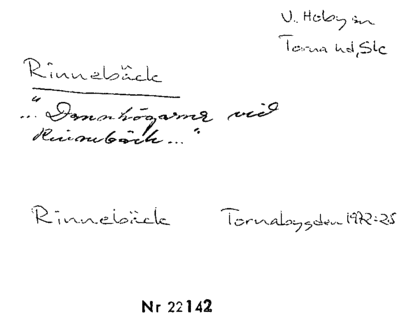 V. Hoby sn
Torna hd, Sk
Rinnebäck
"... Danshögarne vid
Rinnebäck... "
Rinnebäck Tornabygden 1972:25
Nr 22142